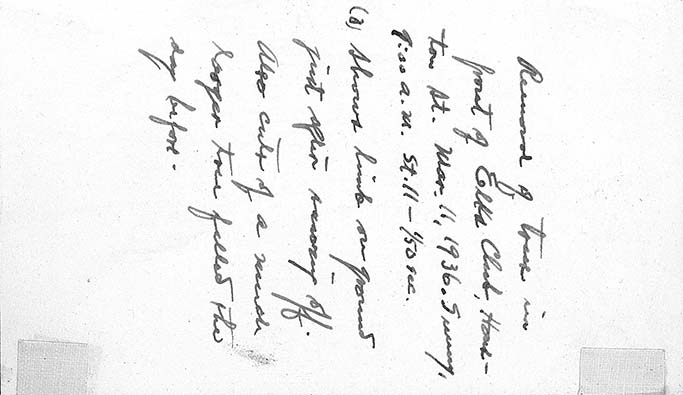 Removal of trees in
front of Elks Club, Hous-
ton St. Mar. 11, 1936. Sunny,
9:00 a.m. St. 11 - 1/50 sec.
(2) Shows limb on ground
just after sawing off.
Also cuts of a much
larger tree felled the
day before.